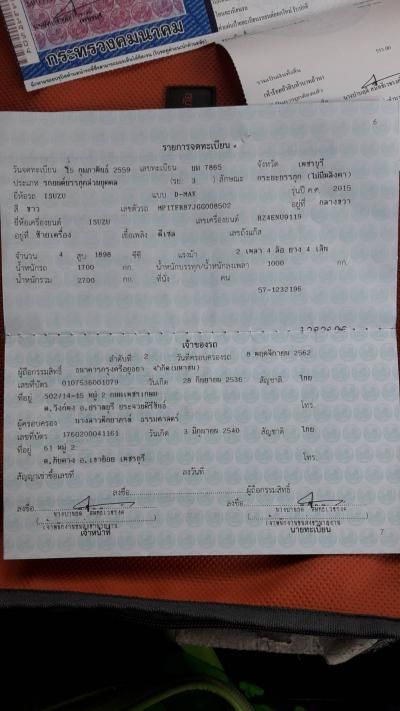 กระทรวงคมนาคม
6
รายการจดทะเบียน
วันจดทะเบียน 15 กุมภาพันธ์ 2559 เลขทะเบียน ยม 7865 จังหวัด เพชรบุรี
ประเภท รถยนต์บรรทุกส่วนบุคคล (รย. 3 ) ลักษณะ กระบะบรรทุก (ไม่มีหลังคา)
ยี่ห้อรถ ISUZU แบบ D-MAX รุ่นปี ค.ศ. 2015
สี ขาว เลขตัวรถ MP1TFR87JGG008502 อยู่ที่ กลางขวา
ยี่ห้อเครื่องยนต์ ISUZU เลขเครื่องยนต์ RZ4ENU9119
อยู่ที่ ซ้ายเครื่อง เชื้อเพลิง ดีเซล เลขถังแก๊ส
จำนวน 4 สูบ 1898 ซีซี แรงม้า 2 เพลา 4 ล้อ ยาง 4 เส้น
น้ำหนักรถ 1700 กก. น้ำหนักบรรทุก/น้ำหนักลงเพลา 1000 กก.
น้ำหนักรวม 2700 กก. ที่นั่ง คน
57-1232196
เจ้าของรถ
ลำดับที่ 2 วันที่ครอบครองรถ 8 พฤศจิกายน 2562
ผู้ถือกรรมสิทธิ์ ธนาคารกรุงศรีอยุธยา จำกัด(มหาชน)
เลขที่บัตร 0107536001079 วันเกิด 28 กันยายน 2536 สัญชาติ ไทย
ที่อยู่ 502/14-15 หมู่ 2 ถนนเพชรเกษม
ต.วังก์พง อ.ปราณบุรี ประจวบคีรีขันธ์ โทร.
ผู้ครอบครอง
เลขที่บัตร 1760200041161 วันเกิด 3 มิถุนายน 2540 สัญชาติ ไทย
ที่อยู่ 61 หมู่ 2
อ.เขาย้อย เพชรบุรี โทร.
สัญญาเช่าซื้อเลขที่ ลงวันที่
ลงชื่อ ผู้ถือกรรมสิทธิ์
ลงชื่อ ลงชื่อ
เจ้าหน้าที่ นายทะเบียน
7